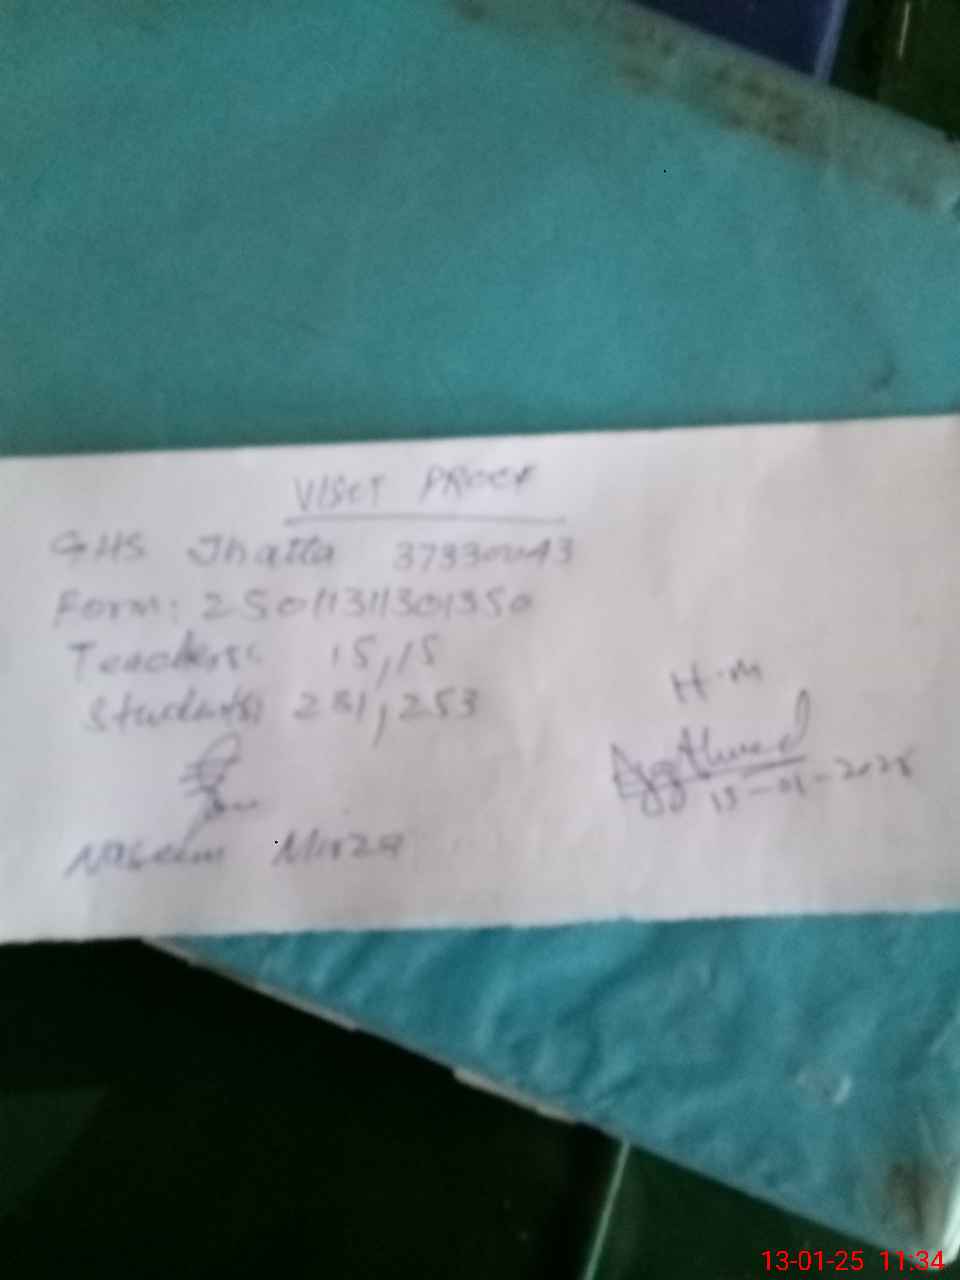 VISIT PROOF
GHS Jhatta 37330043
Form: 2501131301350
Teachers: 15,15
Students: 281,253
H.M
13-01-2025
Naseem Mirza
13-01-25 11:34